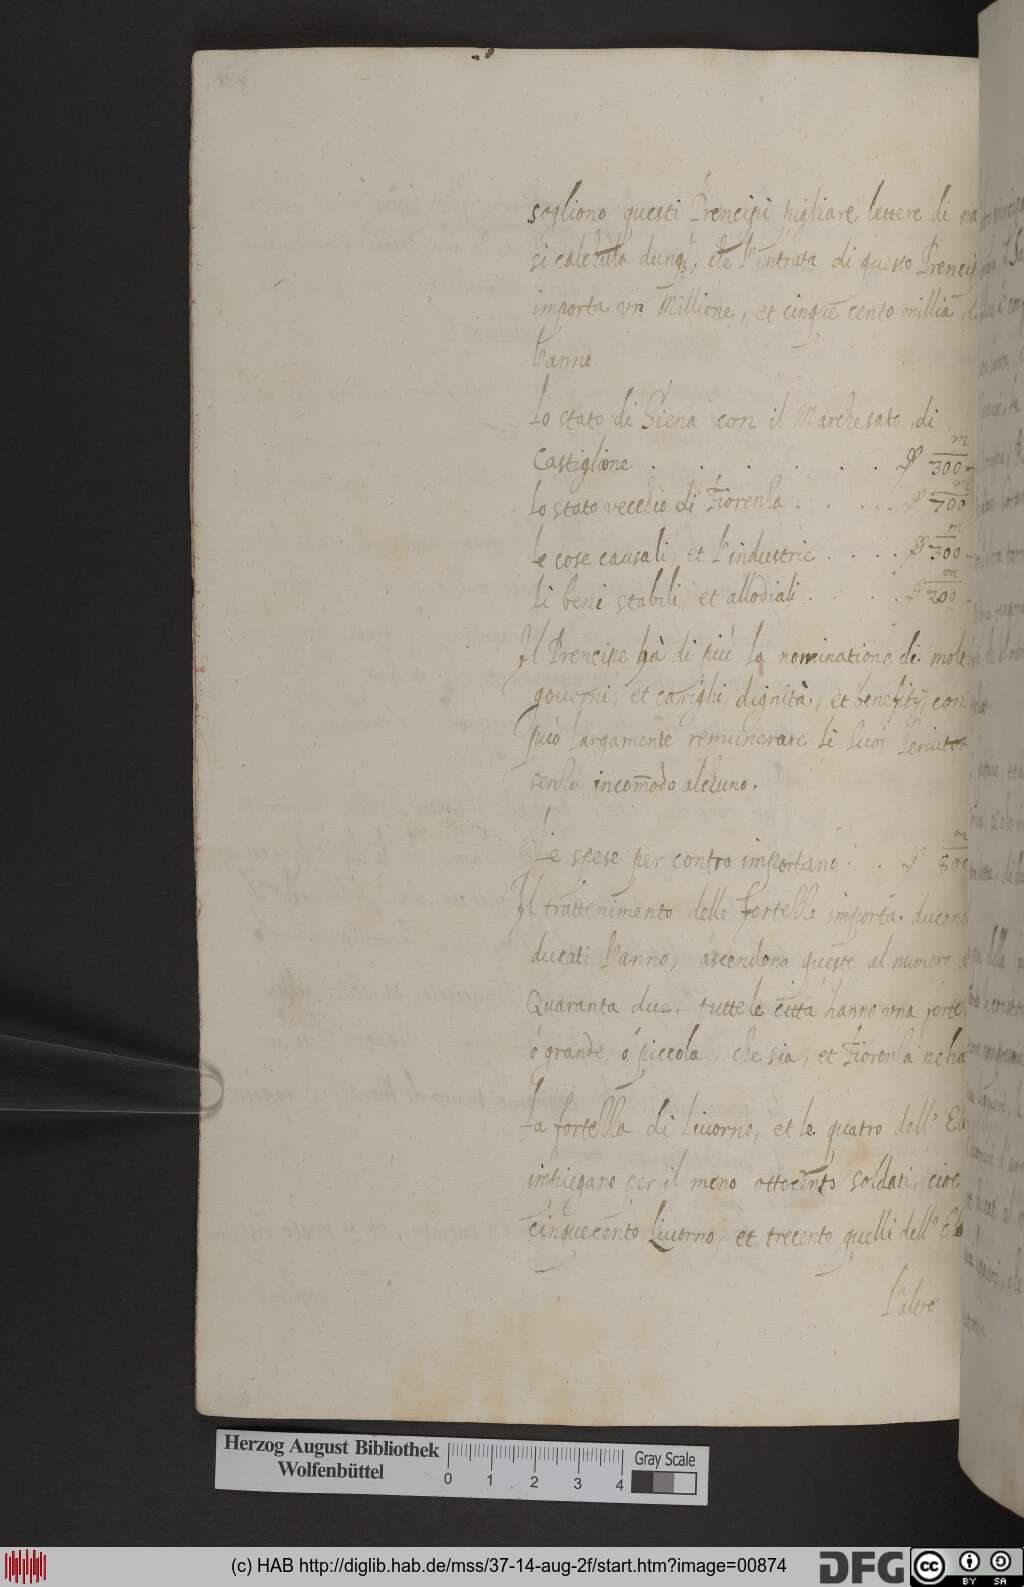 sogliono questi Prencipi pigliare lettere di na
si calchula dunq3, che l'entrata di questo Prencip
importa vn Millione, et cinque cento millia d
l'anno
Lo stato di Siena con il Marchesato di
Castiglione . . . . . . 300 m
Lo stato vecchio di Fiorenza . . . . 700 m
Le cose causali, et l'industrie . . . . 300 m
Li beni stabili, et allodiali . . . . 200 m
Il Prencipe hà di più la nominatione di molti
governi, et carighi, dignità, et benefitij, con
può largamente remunerare li suoi seruitor
senza incom̄odo alchuno.
Le spese per contro importano . . 800 m
Il trattenimento delle fortezze importa ducent
ducati l'anno, ascendono queste al numero
Quaranta due. tutte le città hanno vna fortez
ó grande, ó piccola, che sia, et Fiorenza ne ha
La fortezza di Liuorno, et le quatro dell' Elb
impiegano per il meno ottocento soldati, cioe
cinquecento Liuorno, et trecento quelli dell' Elb
l'altre
Herzog August Bibliothek
Wolfenbüttel
0 1 2 3 4
Gray Scale
(c) HAB http://diglib.hab.de/mss/37-14-aug-2f/start.htm?image=00874
DFG
cc BY SA